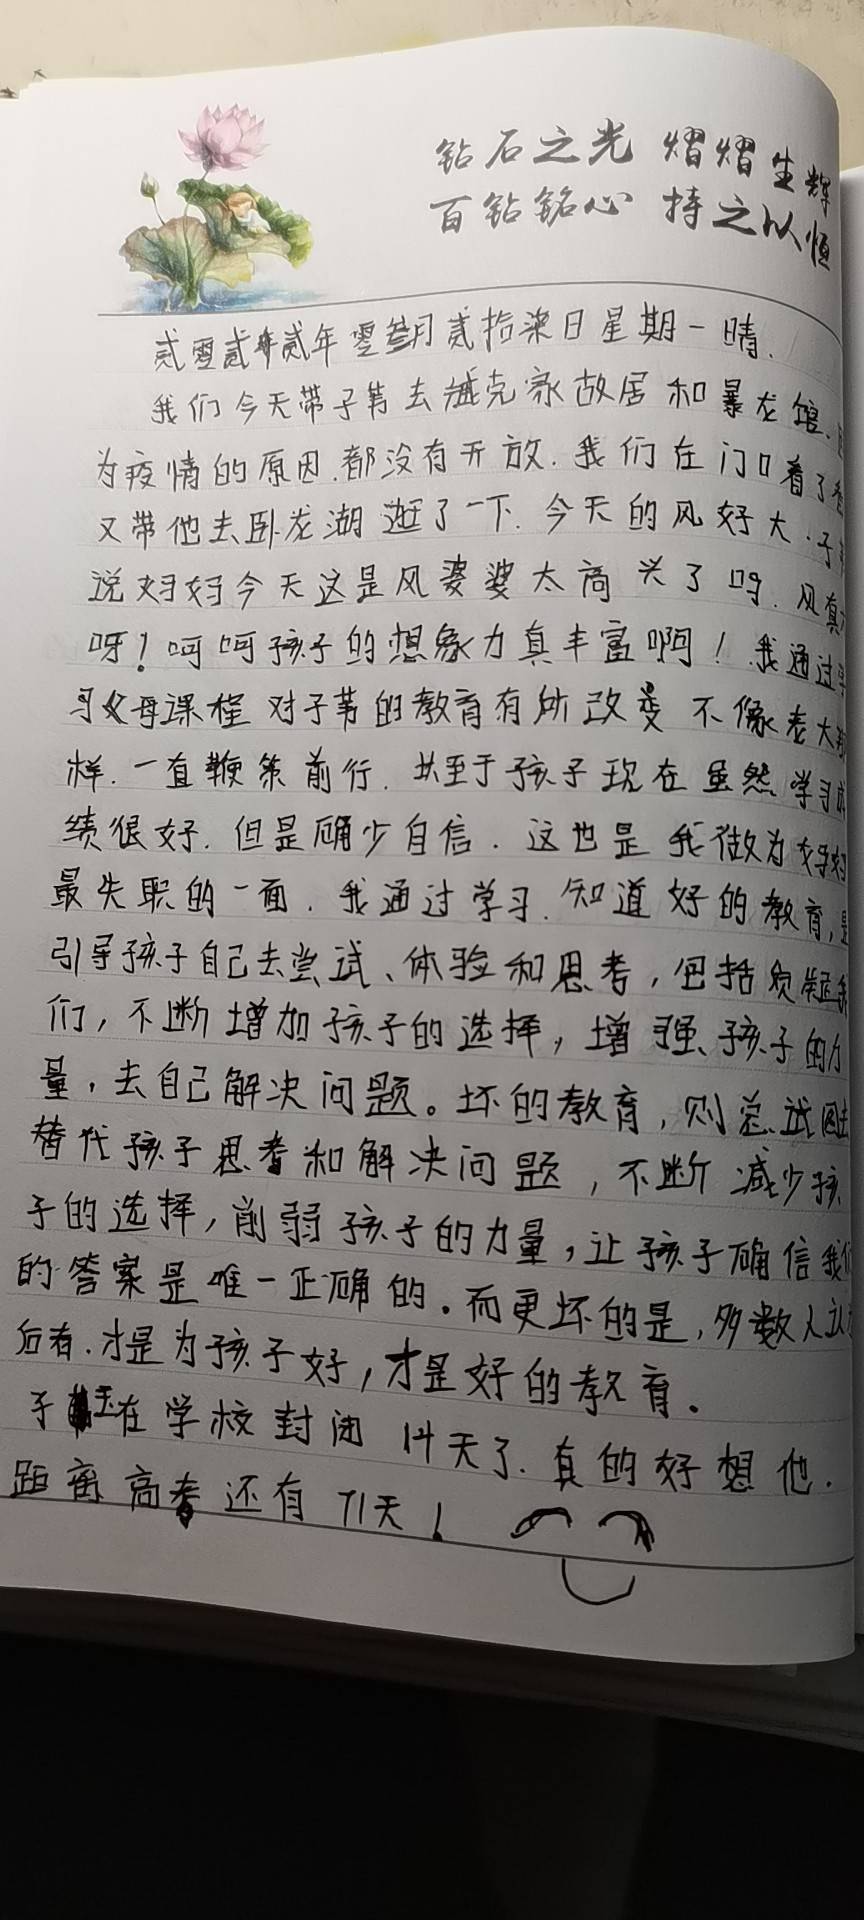 钻石之光 熠熠生辉
百钻铭心 持之以恒
贰零贰贰年零叁月贰拾柒日星期一晴.
我们今天带子苇去臧克家故居和暴龙馆.
为疫情的原因.都没有开放.我们在门口看了
又带他去卧龙湖逛了一下.今天的风好大.子
说妈妈今天这是风婆婆太高兴了吗.风真
呀！呵呵孩子的想象力真丰富啊！我通过学
习父母课程 对子苇的教育有所改变 不像老大那
样.一直鞭策前行.共至于孩子现在虽然学习成
绩很好.但是确少自信.这也是我做为妈妈
最失职的一面.我通过学习.知道好的教育,是
引导孩子自己去尝试、体验和思考,包括质疑我
们,不断增加孩子的选择,增强孩子的力
量,去自己解决问题。坏的教育,则总试图去
替代孩子思考和解决问题,不断减少孩
子的选择,削弱孩子的力量,让孩子确信我们
的答案是唯一正确的.而更坏的是,多数人认为
后者.才是为孩子好,才是好的教育。
子在学校封闭14天了.真的好想他.
距离高考还有71天！